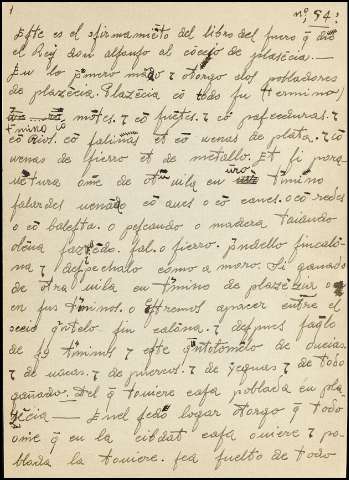 1
nº, 54,
Este es el afirmamiẽto del libro del fuero q̃ dio
el Rey don alfonso al cõceio de plasẽcia. —
En lo p̃mero mãdo ⁊ otorgo alos pobladores
de plazẽcia. Plazẽcia cõ todo su (termino)
mõtes. ⁊ cõ fuẽtes. ⁊ cõ pasceduras. ⁊
t̃mino cõ
cõ Rios. cõ salinas et cõ uenas de plata. ⁊ cõ
uenas de fierro et de metallo. Et si por a
uẽtura ome de otra uila en t̃mino
uro
falardes uenãdo cõ aues o cõ canes. o cõ redes
o cõ balesta. o pescando o madera taiando
o leña faziẽdo. sal. o fierro. p̃ndello sin calo-
ña ⁊ despechalo como a moro. Si ganado
de otra uila en t̃mino de plazẽcia o
en sus t̃minos. o Estremos apacer entre el
cceio q̃ntelo sin calõna. ⁊ despues saq̃lo
de so t̃minos ⁊ este de oueias
⁊ de uacas. ⁊ de puercos. ⁊ de yeguas ⁊ de todo
ganado. Del q̃ touiere casa poblada en pla-
zẽcia — Enel logar otorgo q̃ todo
ome q̃ en la cibdat casa ouiere ⁊ po-
blada la touiere. sea suelto de todo